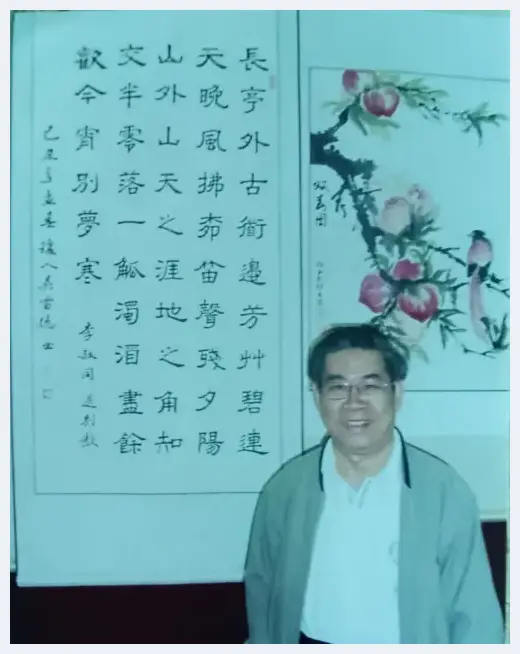 長亭外古衜邊芳艸碧連
天晚風拂桺笛聲殘夕陽
山外山天之涯地之角知
交半零落一觚濁酒盡餘
歡今宵別夢寒 李叔同送别
己丑年孟春